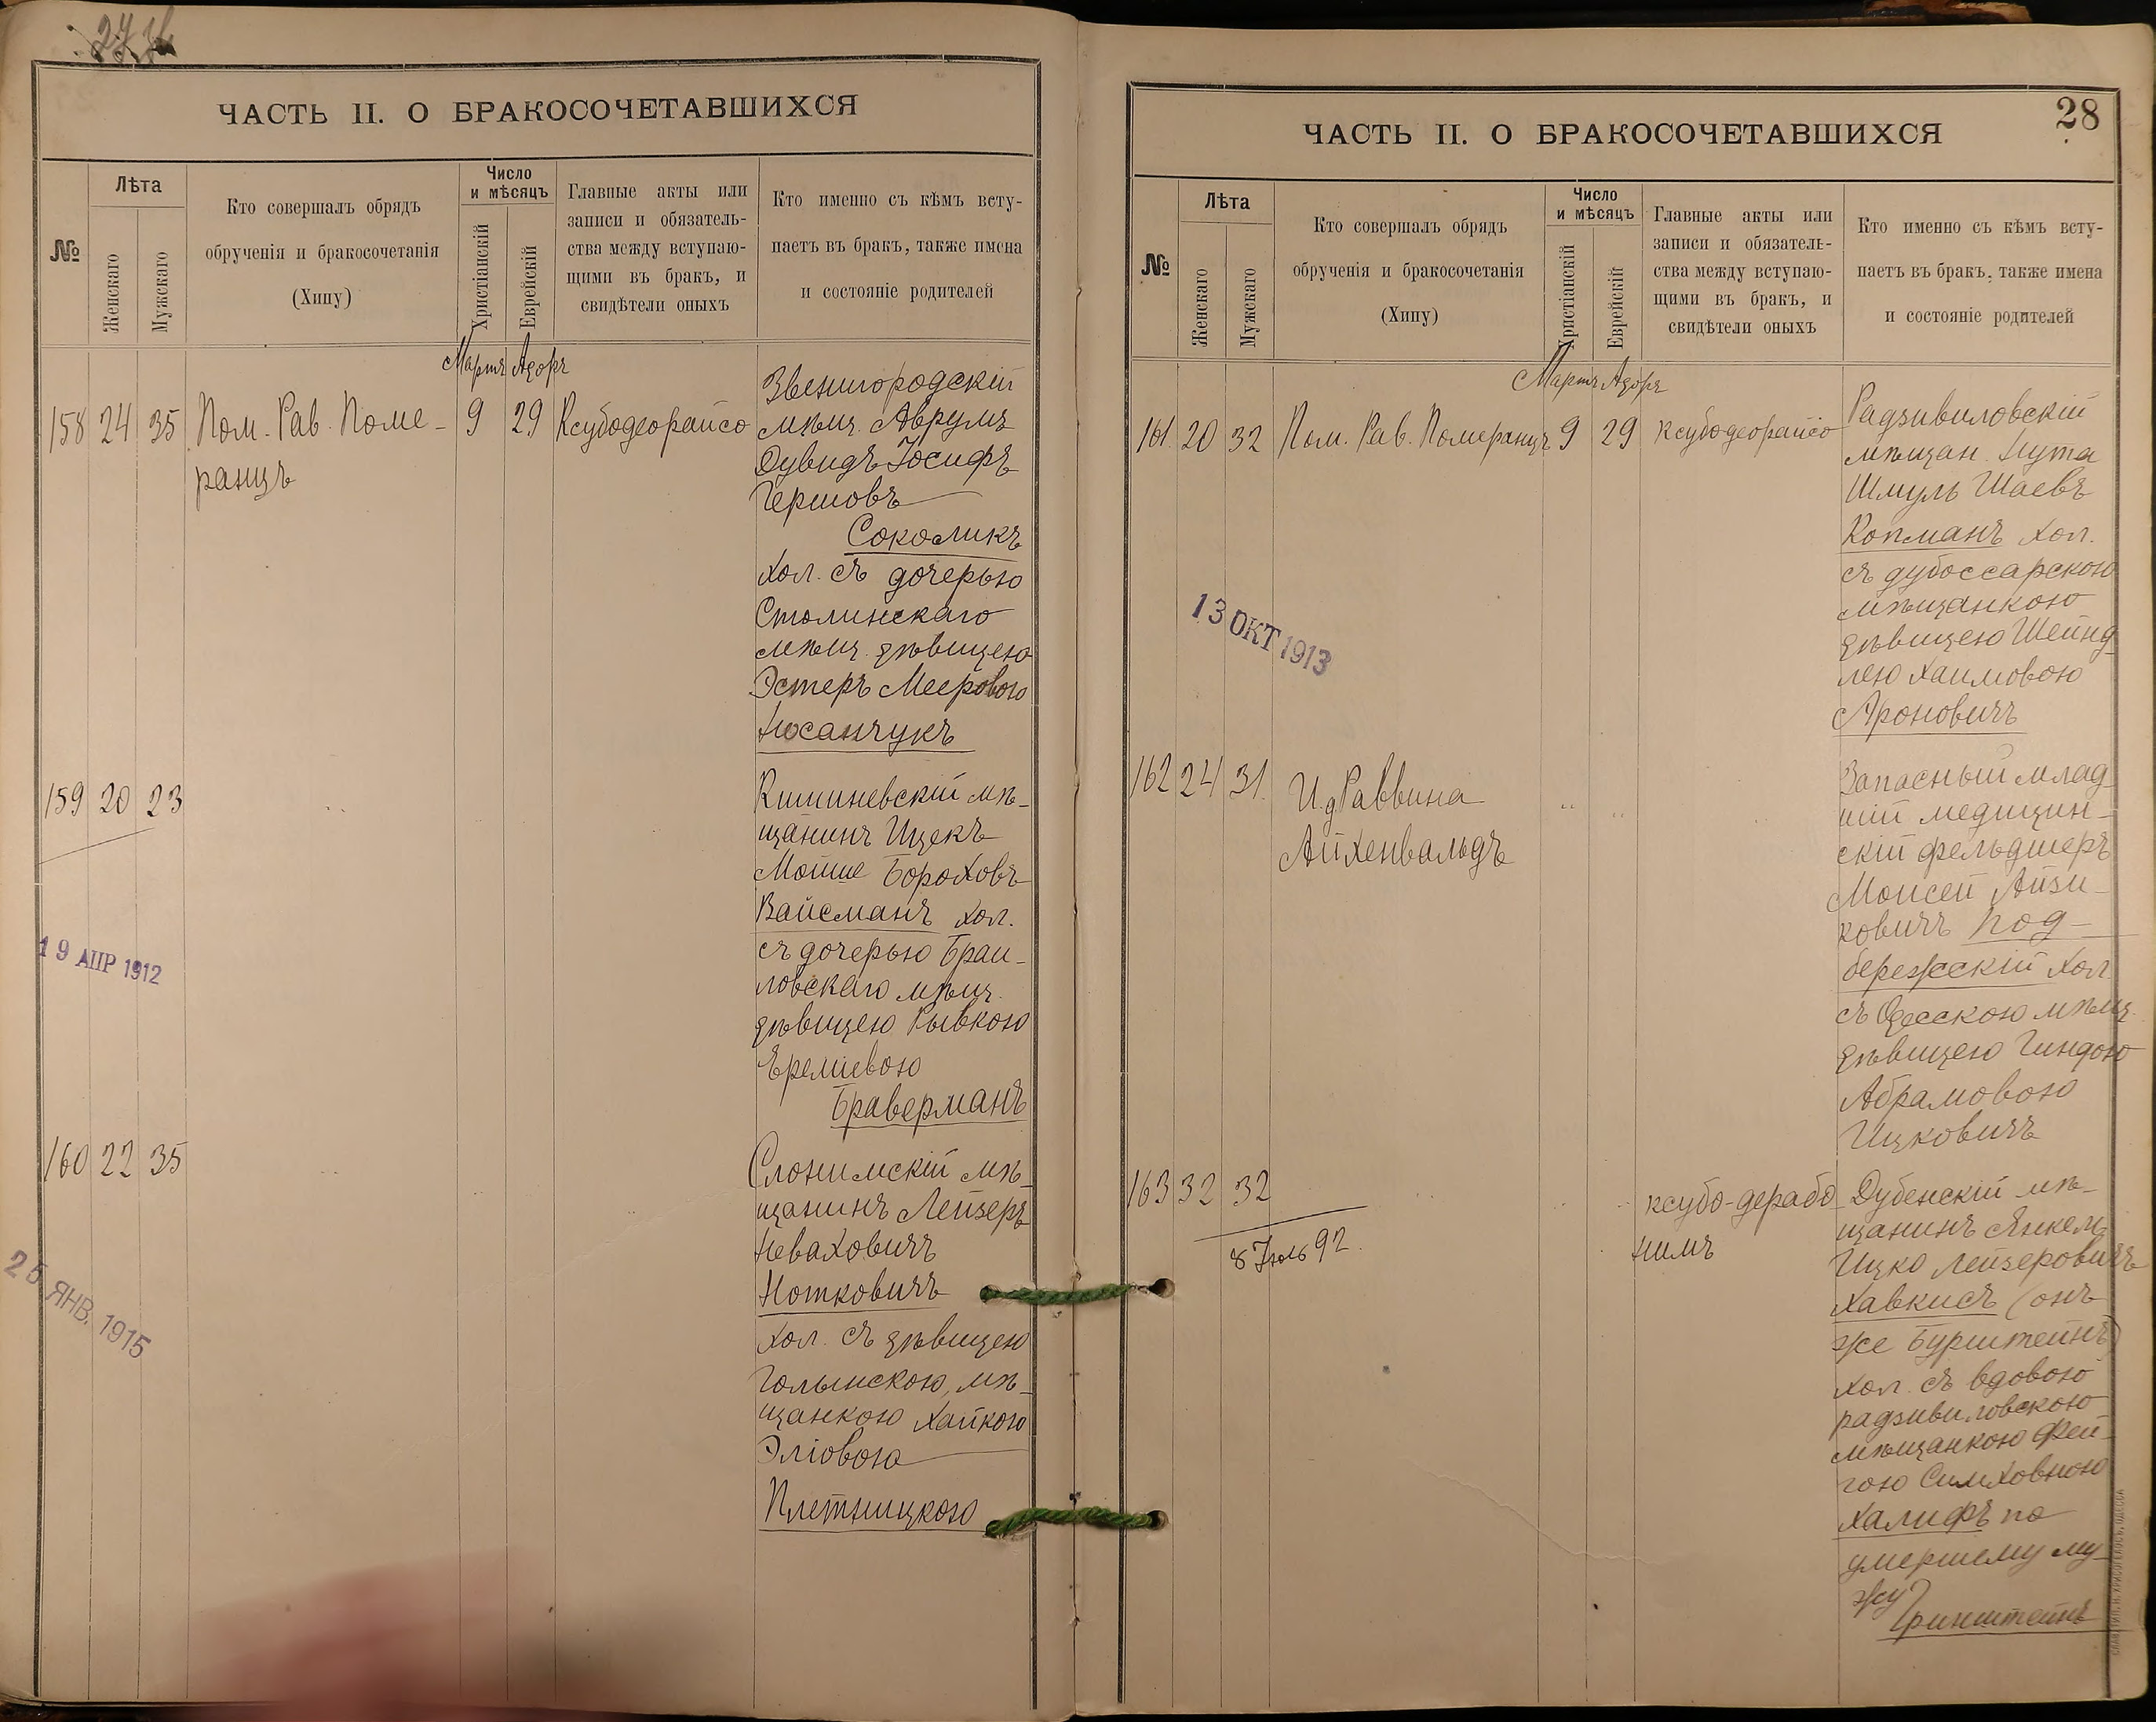 ЧАСТЬ II. О БРАКОСОЧЕТАВШИХСЯ
№
Лѣта
Женскаго
Мужскаго
Кто совершалъ обрядъ
обрученія и бракосочетанія
(Хипу)
Число
и мѣсяцъ
Христіанскій
Еврейскій
Главные акты или
записи и обязатель-
ства между вступаю-
щими въ бракъ, и
свидѣтели оныхъ
Кто именно съ кѣмъ всту-
паетъ въ бракъ, также имена
и состояніе родителей
Мартъ Адоръ
158 24 35 Пом. Рав. Поме-
ранцъ
9 29 Ксубодеорайсо
Звенигородскій
мѣщ. Аврумъ
Дувидъ Іосифъ
Гершовъ
Соколикъ
хол. съ дочерью
Столинскаго
мѣщ. дѣвицею
Эстеръ Мееровою
Носанчукъ
159 20 23
Кишиневскій мѣ-
щанинъ Ицекъ
Мойше Бороховъ
Вайсманъ хол.
съ дочерью Браи-
ловскаго мѣщ.
дѣвицею Рывкою
Яремiевою
Браверманъ
19 АПР 1912
160 22 35
Слонимскій мѣ-
щанинъ Лейзеръ
Неваховичъ
Нотковичъ
хол. съ дѣвицею
Голынскою, мѣ-
щанкою Хайкою
Эліовою
Плетницкою
25 ЯНВ. 1915
28
ЧАСТЬ II. О БРАКОСОЧЕТАВШИХСЯ
№
Лѣта
Женскаго
Мужскаго
Кто совершалъ обрядъ
обрученія и бракосочетанія
(Хипу)
Число
и мѣсяцъ
Христіанскій
Еврейскій
Главные акты или
записи и обязатель-
ства между вступаю-
щими въ бракъ, и
свидѣтели оныхъ
Кто именно съ кѣмъ всту-
паетъ въ бракъ, также имена
и состояніе родителей
Мартъ Адоръ
161. 20 32 Пом. Рав. Померанцъ 9 29 ксубодеорайсо
Радзивиловскій
мѣщан. Нута
Шмуль Шаевъ
Копманъ хол.
съ дубоссарскою
мѣщанкою
дѣвицею Шейнд-
лею Хаимовою
Ароновичъ
13 ОКТ 1913
162 24 31. И.д. Раввина
Айхенвальдъ
Запасный млад-
шій медицин-
скій фельдшеръ
Моисей Айзи-
ковичъ Под-
бережскій хол
съ Одесскою мѣщ.
дѣвицею Гиндою
Абрамовою
Ицковичъ
163 32 32
8 Іюль 92.
ксубо-дерабо-
нимъ
Дубенскій мѣ-
щанинъ Янкель
Ицко Лейзеровичъ
Хавкисъ (онъ
же Бурштейнъ)
хол. съ вдовою
радзивиловскою
мѣщанкою Фей-
гою Симховною
Халифъ по
умершему му-
жу Гринштейнъ